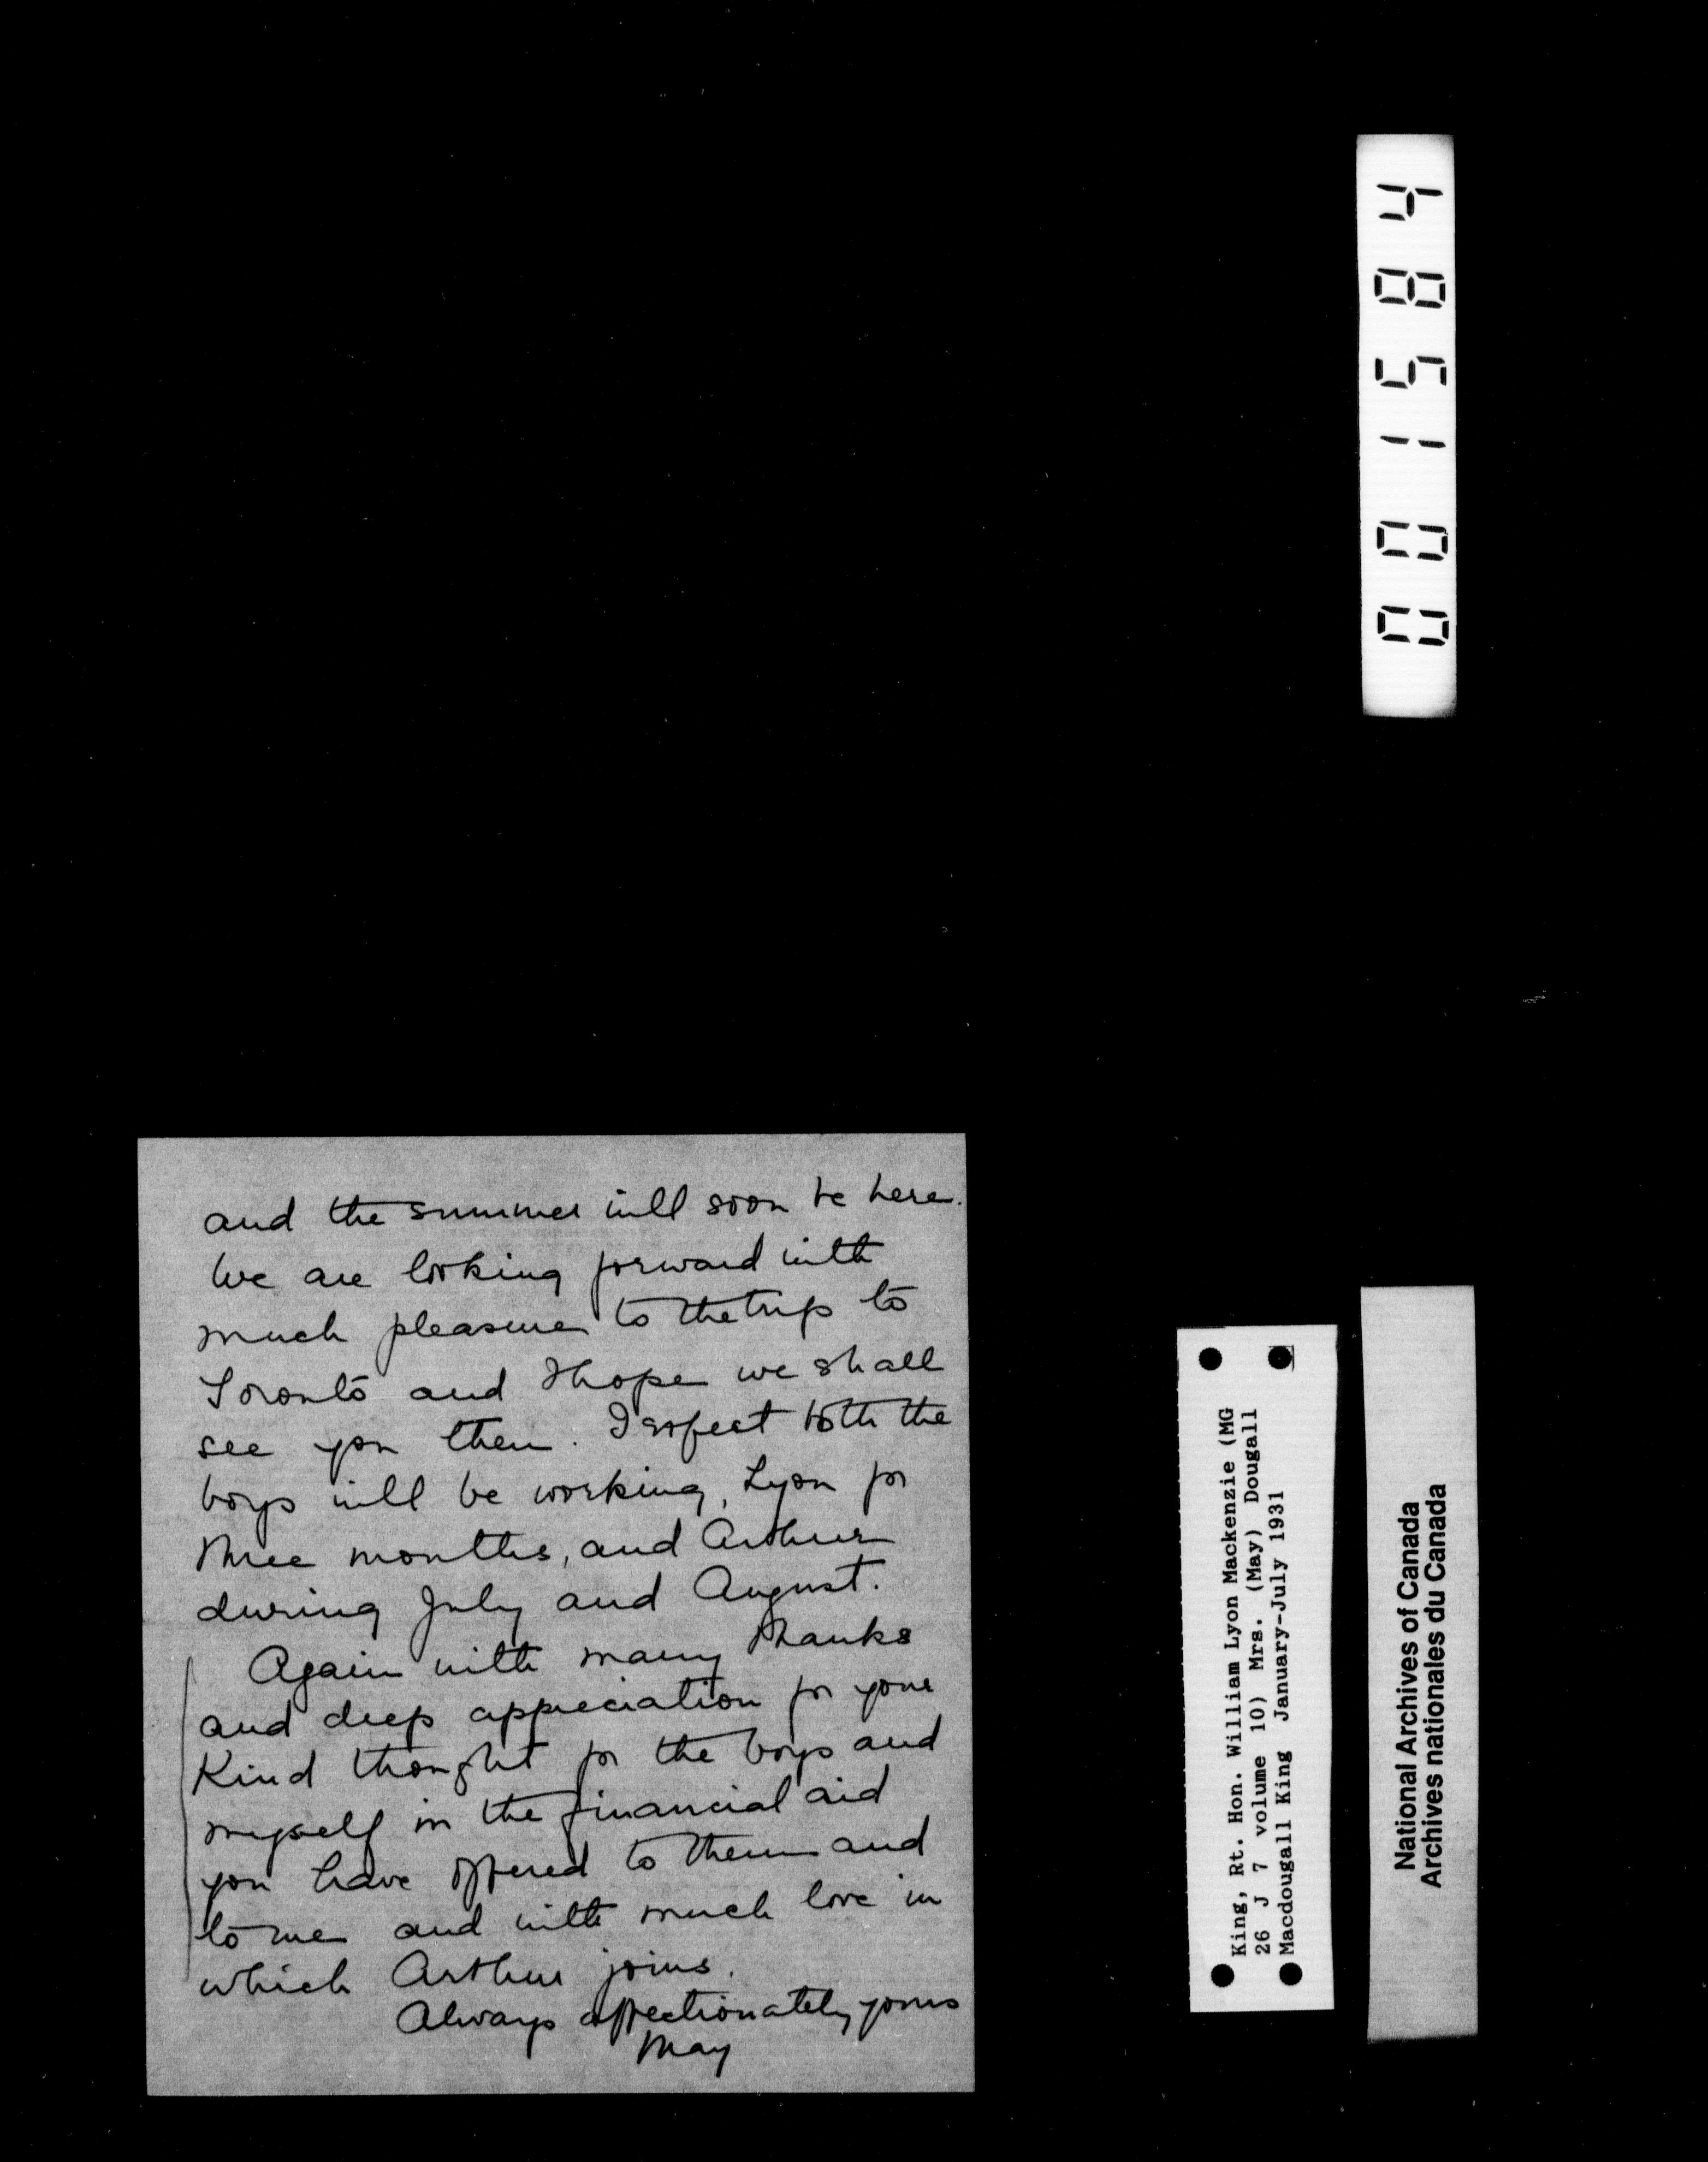 and the summer will soon be here.
We are looking forward with
much pleasure to the trip to
Toronto and I hope we shall
see you then. I expect both the
boys will be working, Lyon for
three months, and Arthur
during July and August.
Again with many thanks
and deep appreciation for your
Kind thought for the boys and
myself in the financial aid
you have offered to them and
to me and with much love in
which Arthur joins.
Always affectionately yours
May
001584
King, Rt. Hon. William Lyon Mackenzie (MG
26 J 7 volume 10) Mrs. (May) Dougall
Macdougall King January-July 1931
National Archives of Canada
Archives nationales du Canada